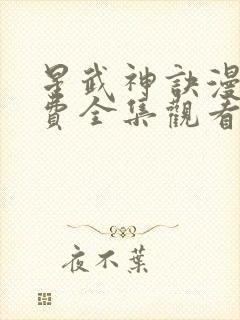 星武神訣漫
費全集觀看
夜不葉